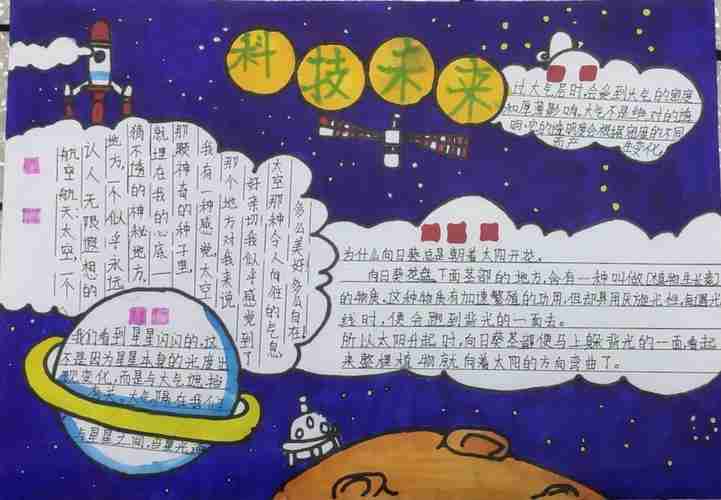 科技未来
过大气层时,会受到大气的密度
和厚薄影响,大气不是绝对的透
明,它的透明度会根据密度的不同
而产生变化。
航空航天,太空,一个
让人无限遐想的
地方,一个似乎永远
猜不透的神秘地方。
就埋在我的心底一
那颗神奇的种子里,
我有一种感觉,太空
那个地方对我来说
好亲切我似乎感觉到了
太空那种令人向往的气息,
多么美好多么自在
为什么向日葵总是朝着太阳开花。
向日葵花盘下面茎部的地方,含有一种叫做(植物生长素)
的物质。这种物质有加速繁殖的功用,但却具厌旋光性,每遇光
线时,便会跑到背光的一面去。
所以太阳升起时,向日葵茎部便马上躲背光的一面,看起
来整棵植物就向着太阳的方向弯曲了。
我们看到星星闪闪的,这
不是因为星星本身的光度出
现变化,而是与大气遮挡
有关。大气隔在我们
与星星之间,当星光通